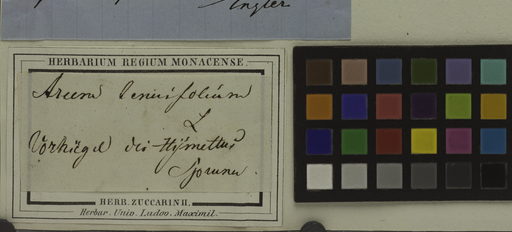 Engler
HERBARIUM REGIUM MONACENSE.
Arum tenuifolium
L
Vorhügel des Hÿmettus
Spruner
HERB. ZUCCARINII.
Herbar. Univ. Ludov. Maximil.